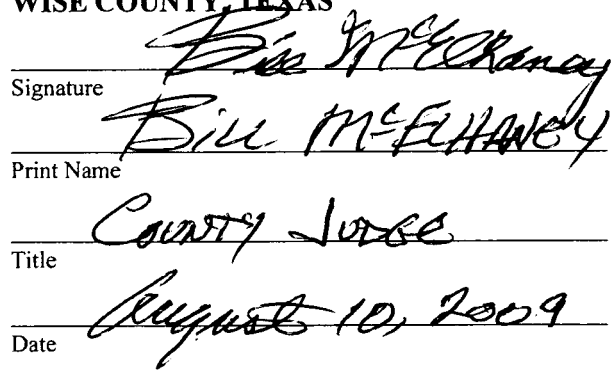 WISE COUNTY, TEXAS
Bill McElhaney
Signature
Bill McELHANEY
Print Name
County Judge
Title
August 10, 2009
Date